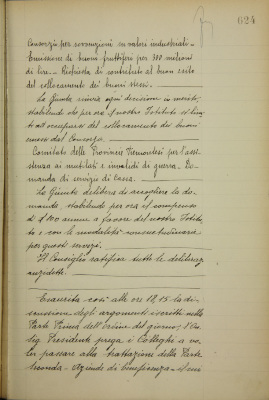 624
Consorzio per sovvenzioni su valori industriali -
Emissione di buoni fruttiferi per 300 milioni
di lire - Richiesta di contributo al buon esito
del collocamento dei buoni stessi. -
La Giunta rinvia ogni decisione in merito,
stabilendo che per ora il nostro Istituto si limiti
ad occuparsi del collocamento dei buoni
emessi dal Consorzio.
Comitato delle Provincie Piemontesi per l'assi-
stenza ai mutilati e invalidi di guerra - Do-
manda di servizio di Cassa.
La Giunta delibera di accogliere la do-
manda, stabilendo per ora il compenso
di annue a favore del nostro Istitu-
to e con le modalità
per questi servizi.
Il Consiglio ratifica tutte le deliberaz.
anzidette.
Esaurita così alle ore 18,15 la di-
scussione degli argomenti iscritti nella
Parte Prima dell'ordine del giorno, l'On.
Sig. Presidente prega i Colleghi a vo-
ler passare alla trattazione della Parte
Seconda - Aziende di Beneficenza -